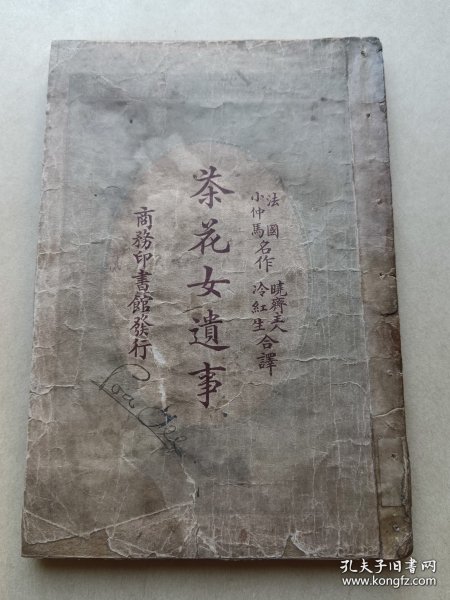 法國
小仲馬名作
曉齋主人
冷紅生
合譯
茶花女遺事
商務印書館發行
孔夫子旧书网
www.kongfz.com